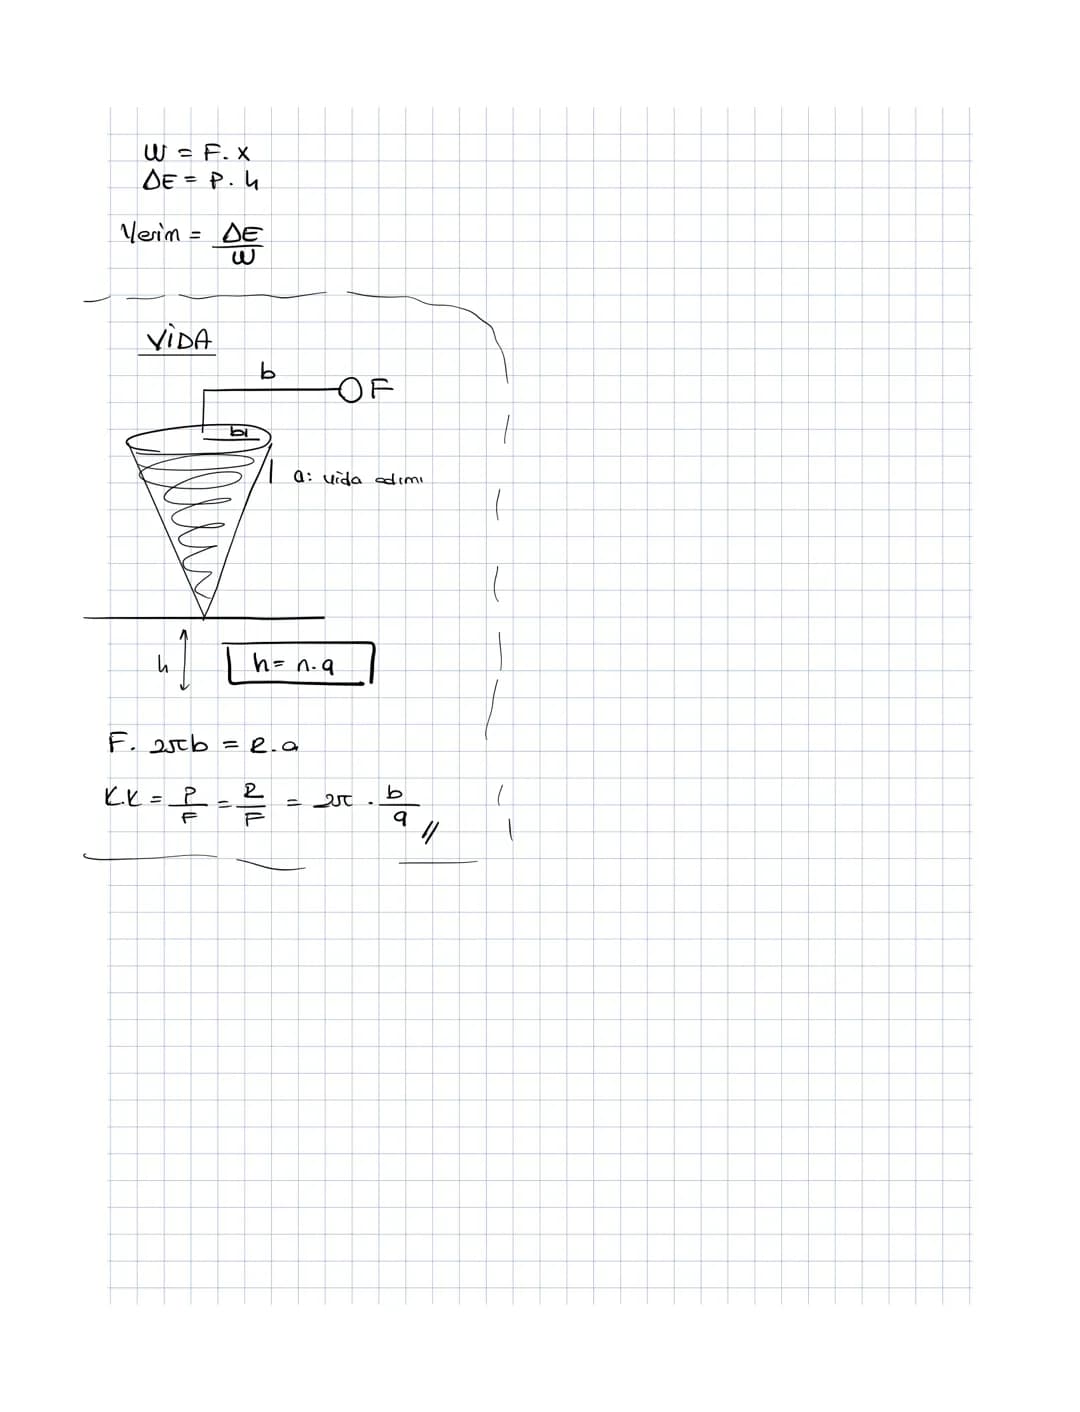 W = F. x
ΔE = P. h
Verim = ΔE / W
VİDA
b
F
b1
a: vida adımı
h
h = n. a
F. 2πb = R. a
K.K = P / F = R / F = 2π . b / a //